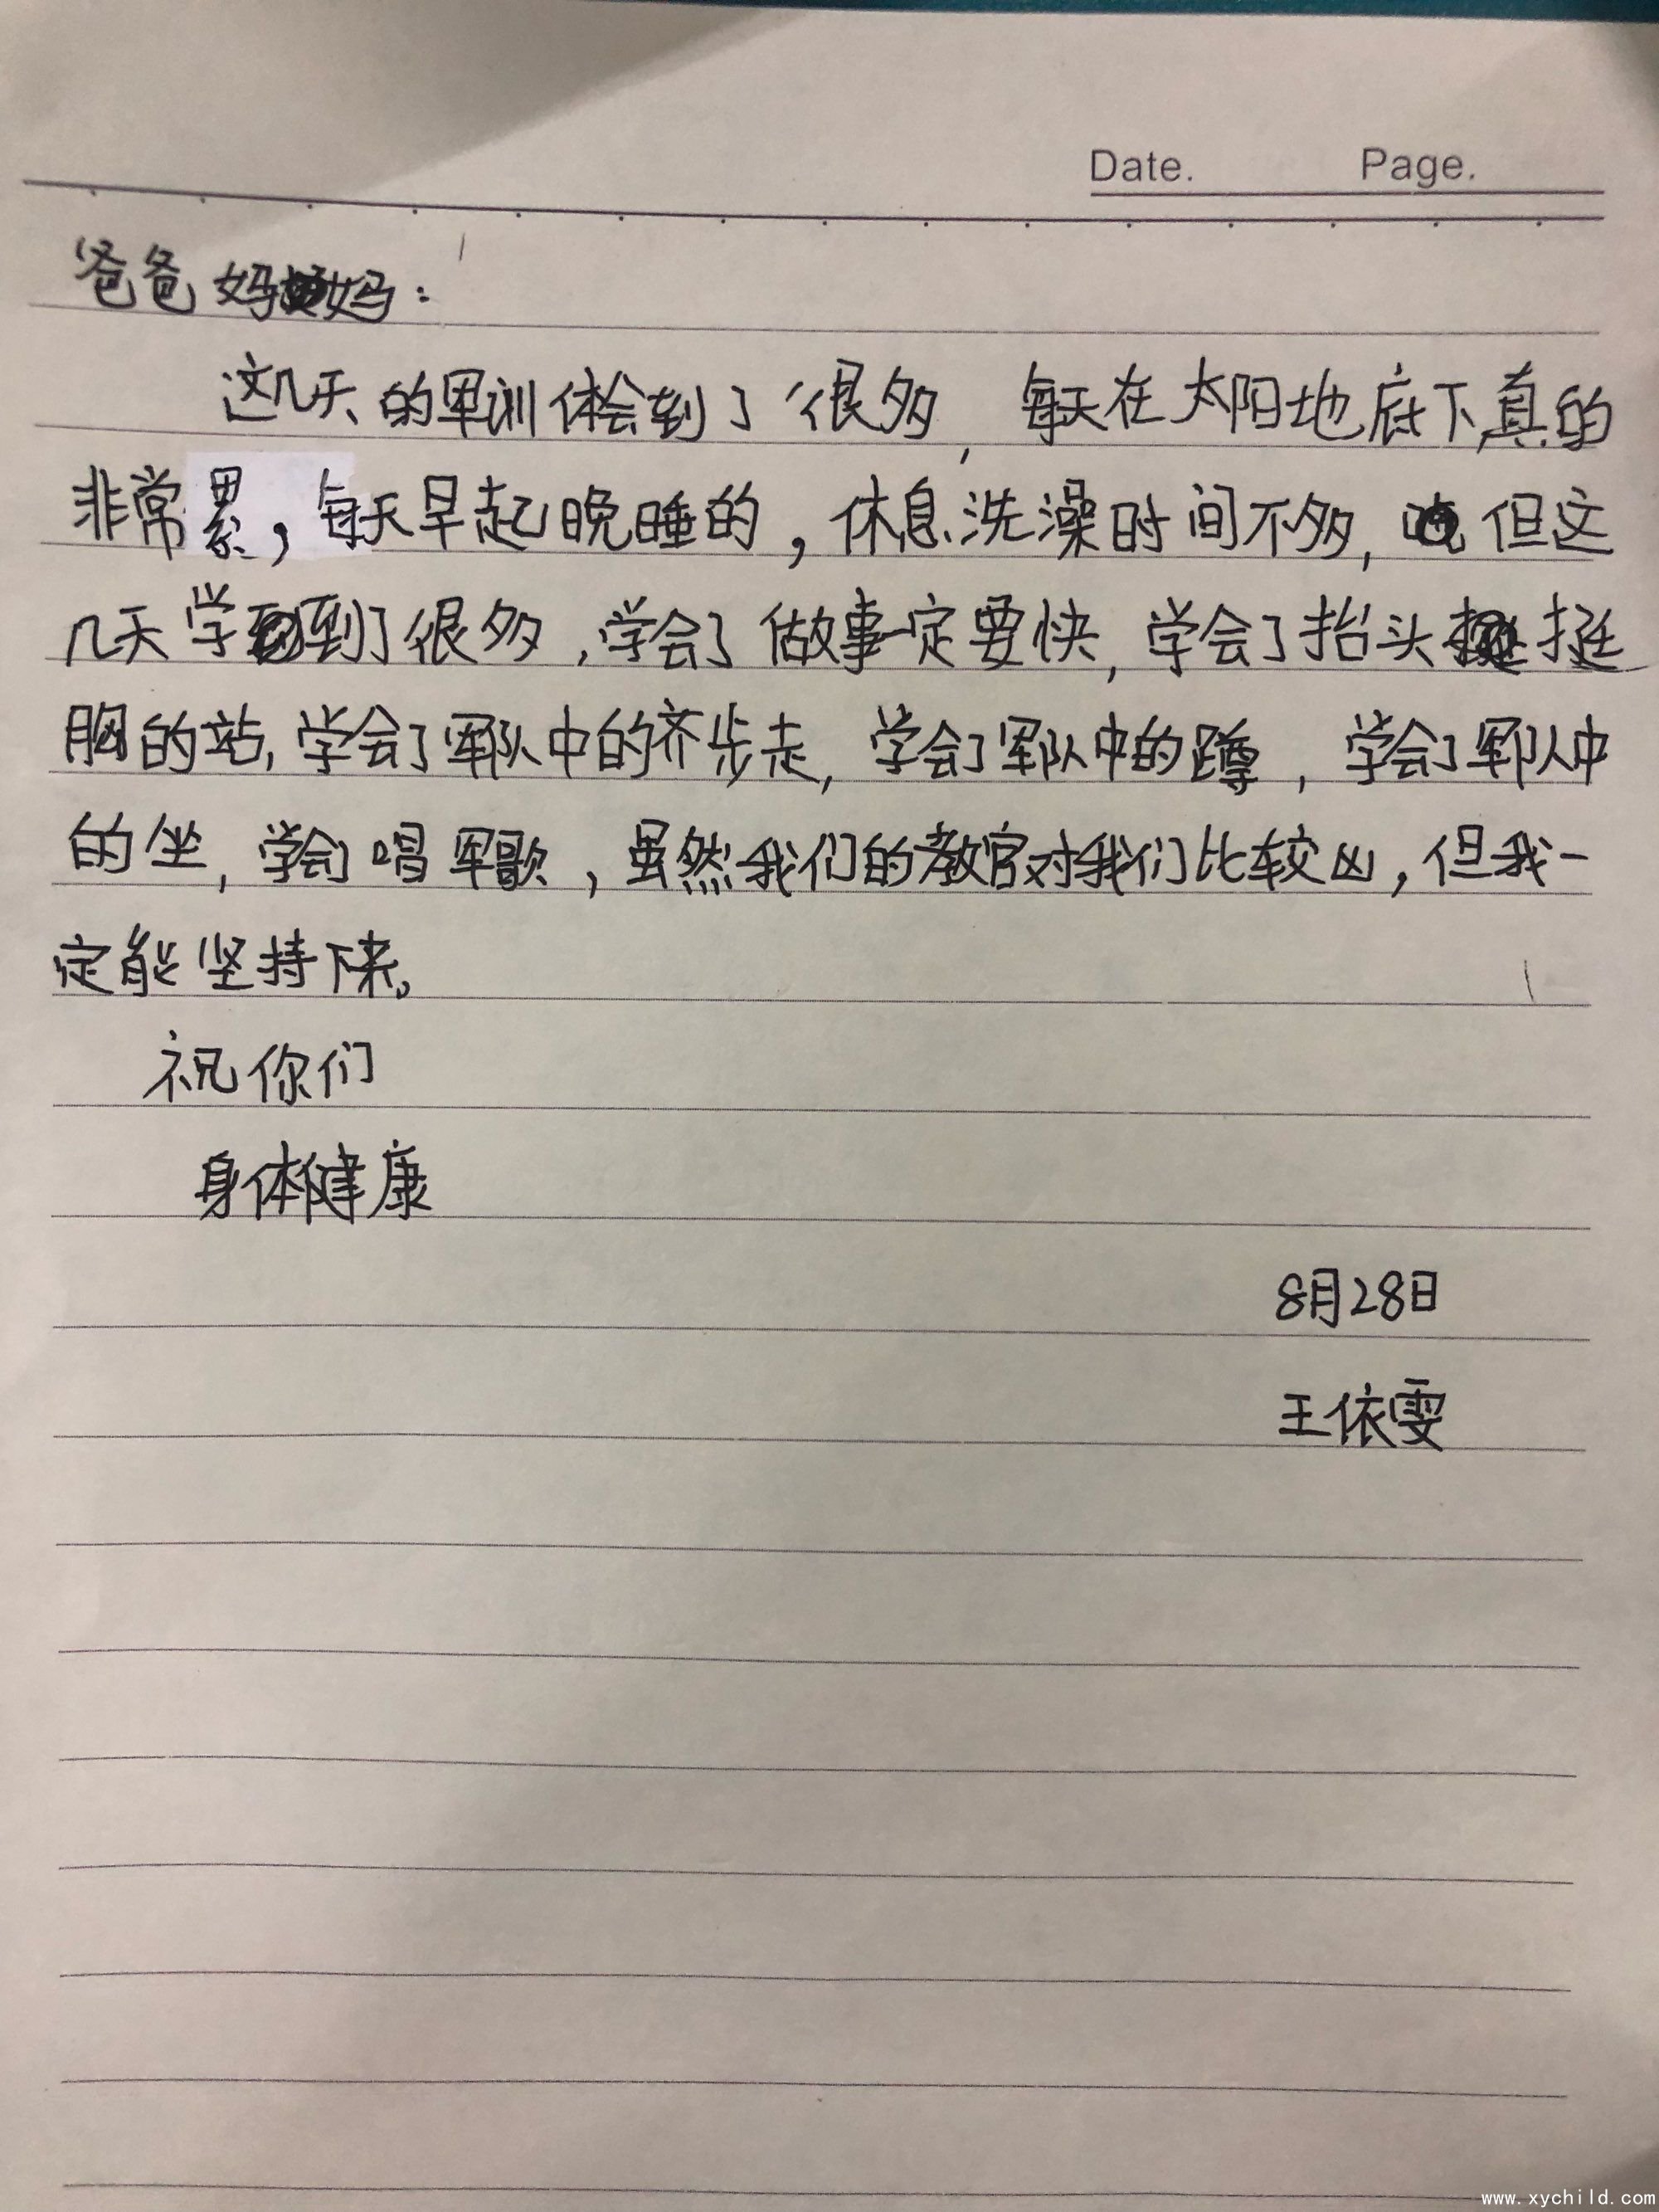 Date. Page.
爸爸妈妈：
这几天的军训体会到了很多，每天在太阳地底下，真的
非常累，每天早起晚睡的，休息洗澡时间不多，但这
几天学到了很多，学会了做事一定要快，学会了抬头挺
胸的站，学会了军队中的齐步走，学会了军队中的蹲，学会了军队中
的坐，学会了唱军歌，虽然我们的教官对我们比较凶，但我一
定能坚持下来。
祝你们
身体健康
8月28日
王依雯
www.xychild.com